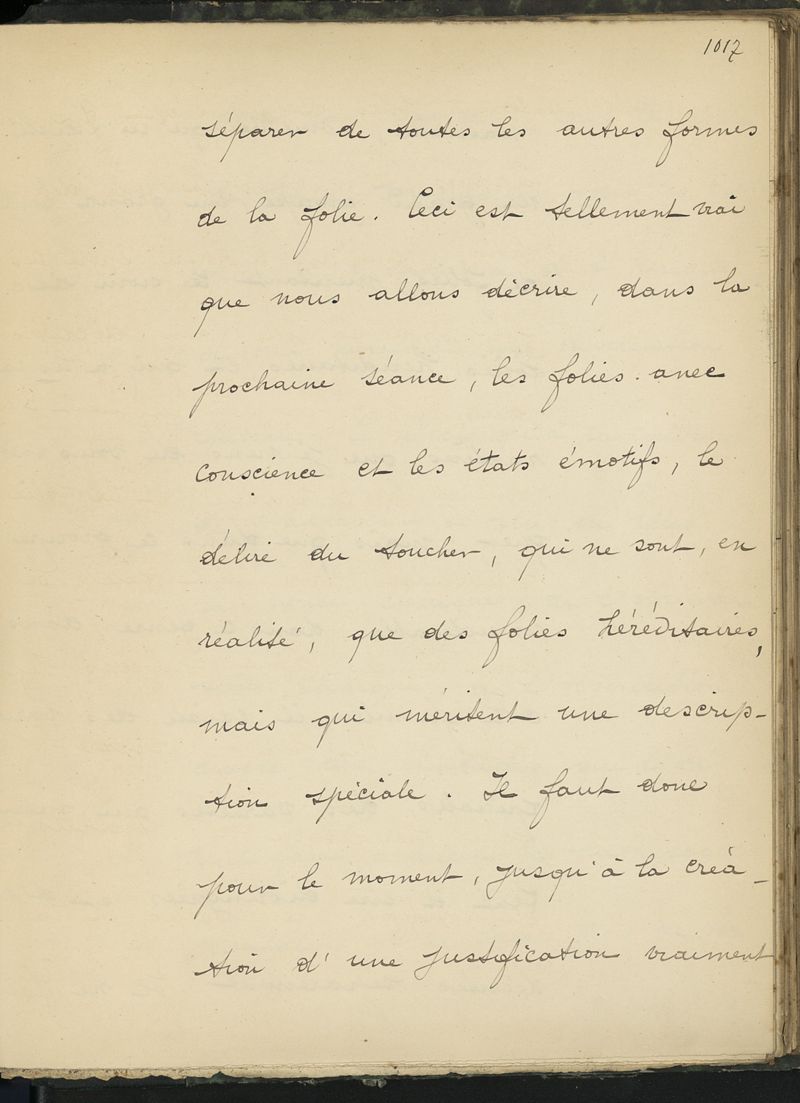 1017
séparer de toutes les autres formes
de la folie. Ceci est tellement vrai
que nous allons décrire, dans la
prochaine séance, les folies avec
conscience et les états émotifs, le
délire du toucher, qui ne sont, en
réalité, que des folies héréditaires,
mais qui méritent une descrip-
tion spéciale. Il faut donc
pour le moment, jusqu'à la créa-
tion d'une justification vraiment